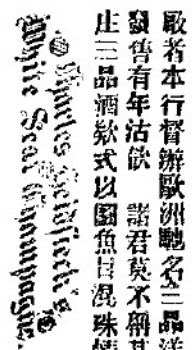 啟者本行督辦歐洲馳名三品洋
發售有年沽飲 諸君莫不稱其
庄三品酒欵式以圖魚目混珠情
Charles Heidsieck's
White Seal Champagne